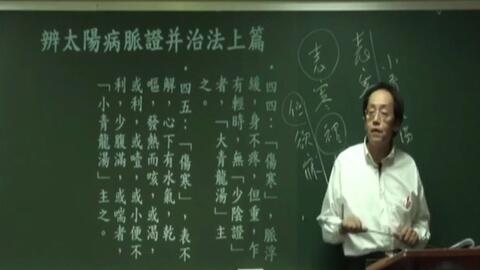 辨太陽病脈證并治法上篇
・四四：「傷寒」，脈浮
緩，身不疼，但重，乍
有輕時，無「少陰證」
者，「大青龍湯」主
之。
・四五：「傷寒」，表不
解，心下有水氣，乾
嘔，發熱而咳，或渴，
或利，或噎，或小便不
利，少腹滿，或喘者，
「小青龍湯」主之。
表寒